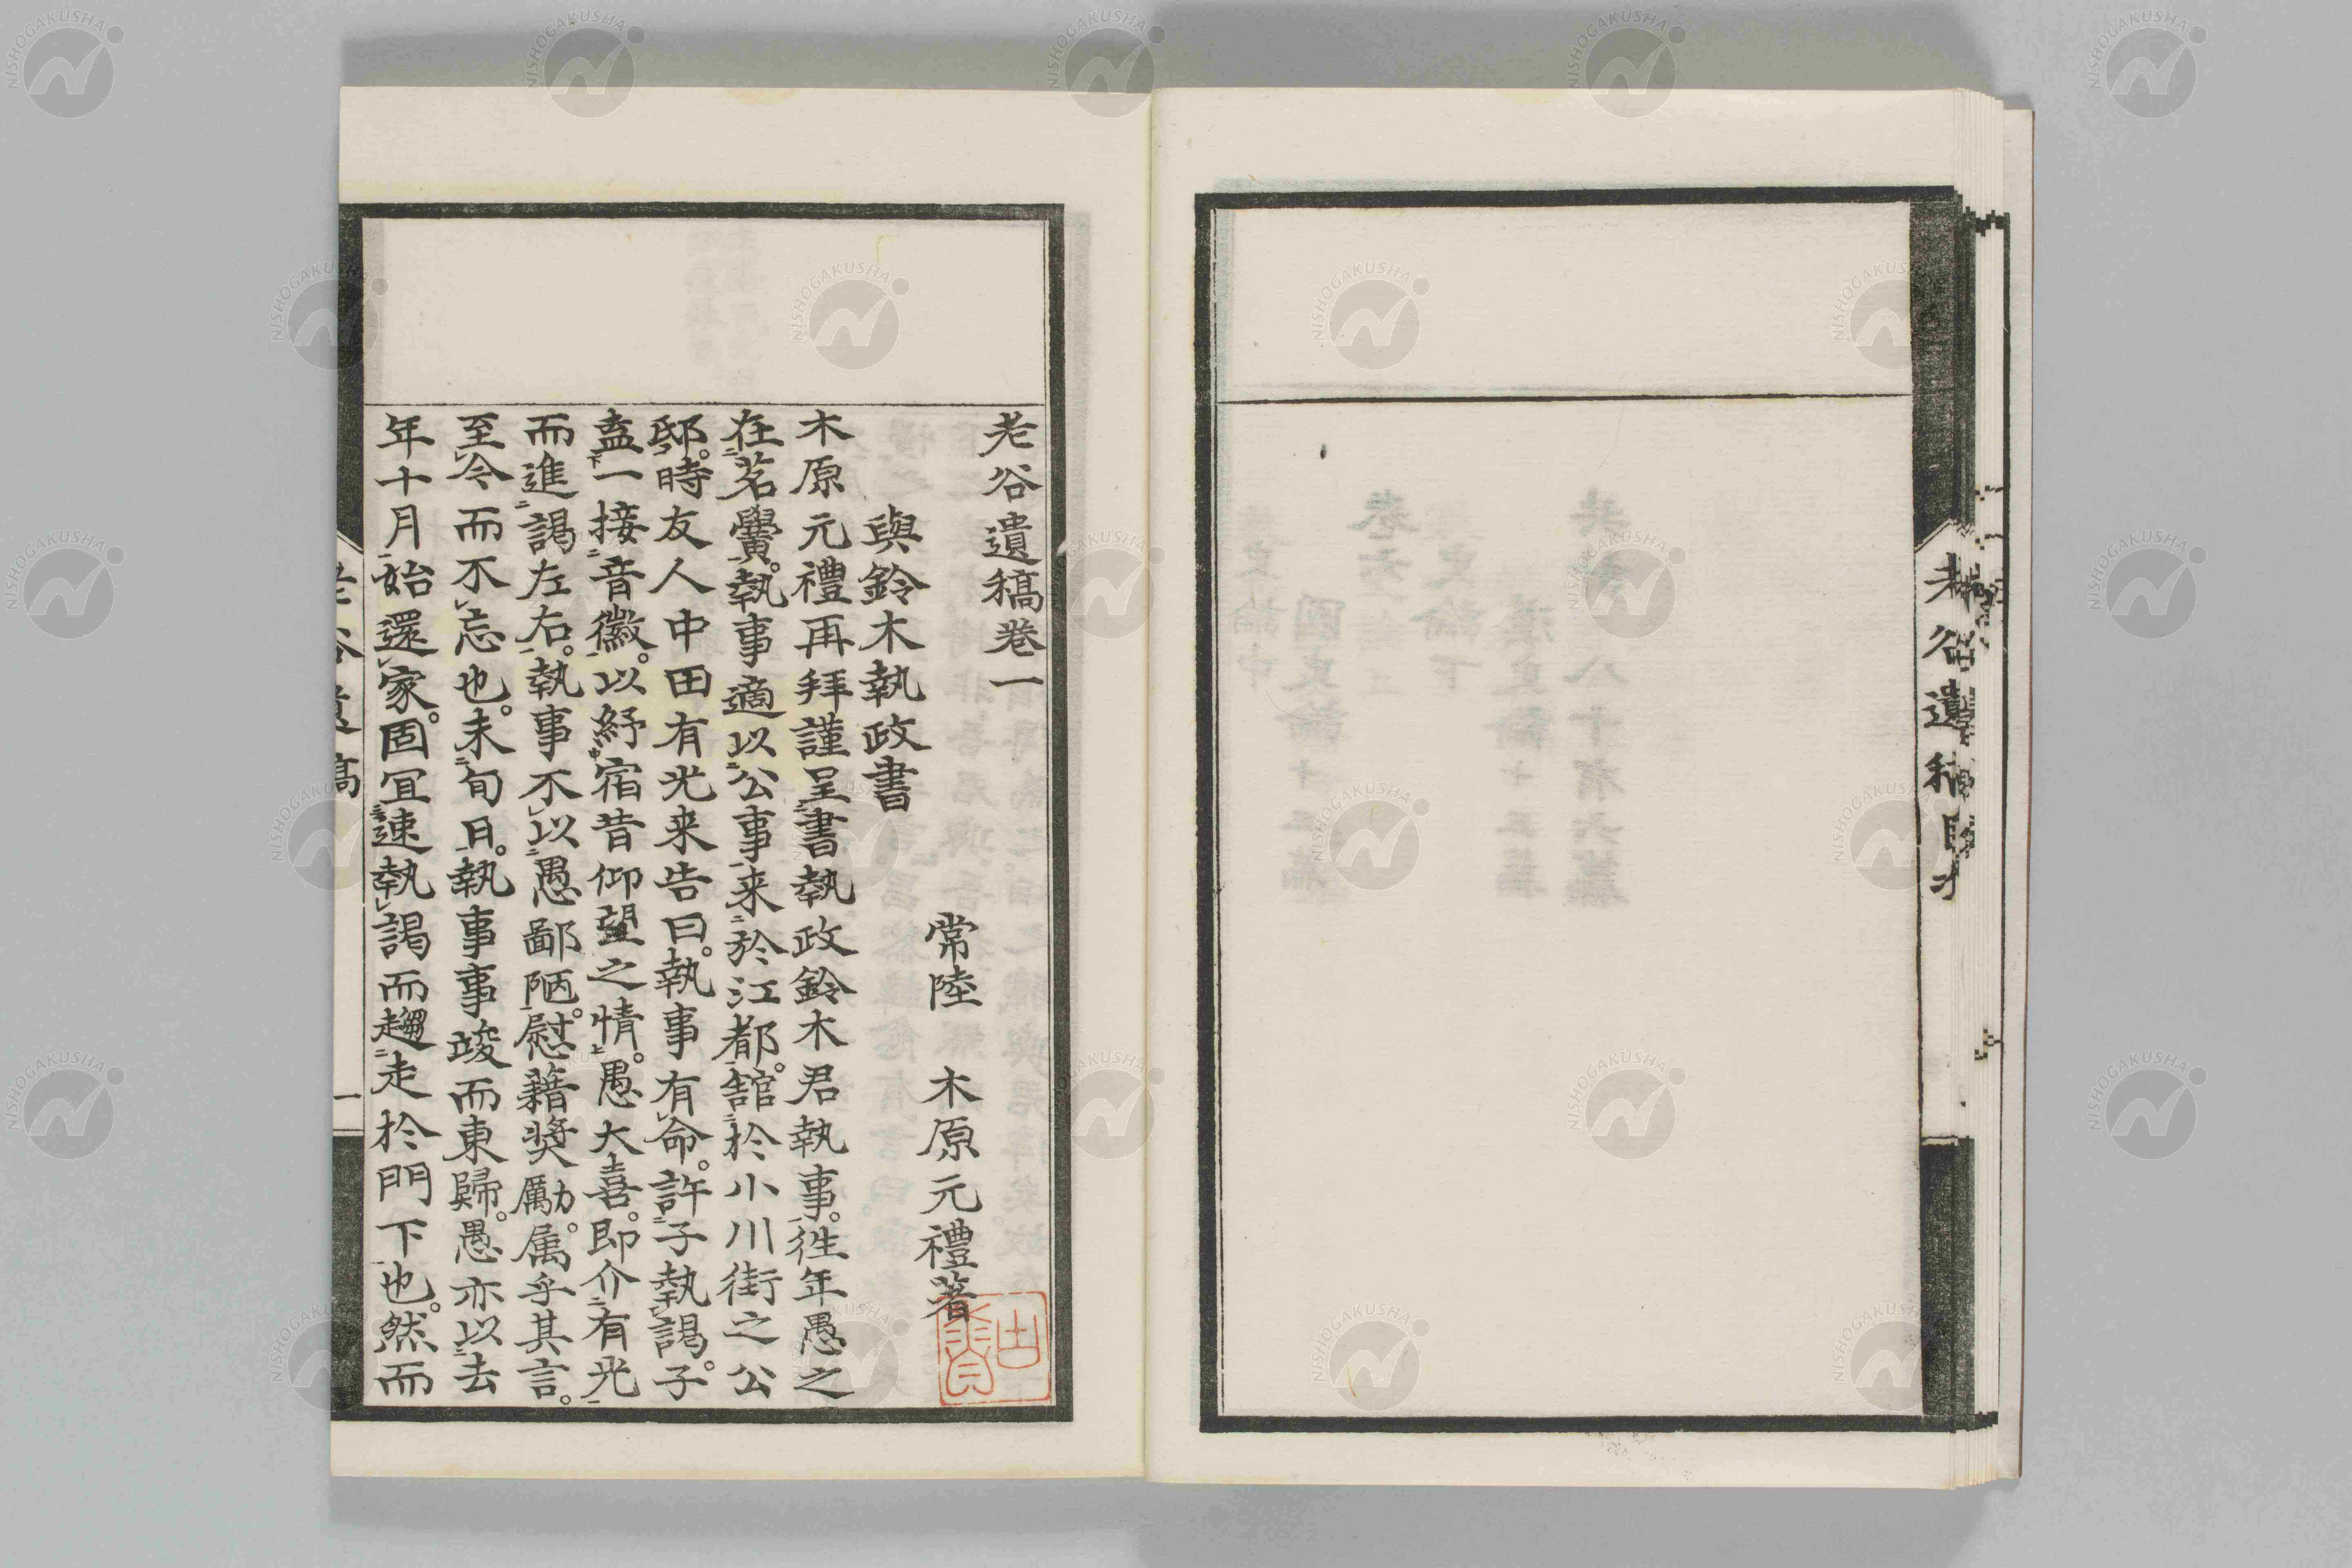 老谷遺稿卷一
常陸 木原元禮著
與鈴木執政書
木原元禮再拜謹呈書執政鈴木君執事。往年愚之
在茗黌。執事適以公事来於江都。舘於小川街之公
邸。時友人中田有光来告曰。執事有命。許子執謁。子
盍一接音徽。以紓宿昔仰望之情。愚大喜。即介有光
而進謁左右。執事不以愚鄙陋。慰藉奬勵。属乎其言。
至今而不忘也。未旬日。執事事竣而東歸。愚亦以去
年十月始還家。固宜速執謁而趨走於門下也。然而
老谷遺稿
一
NISHOGAKUSHA